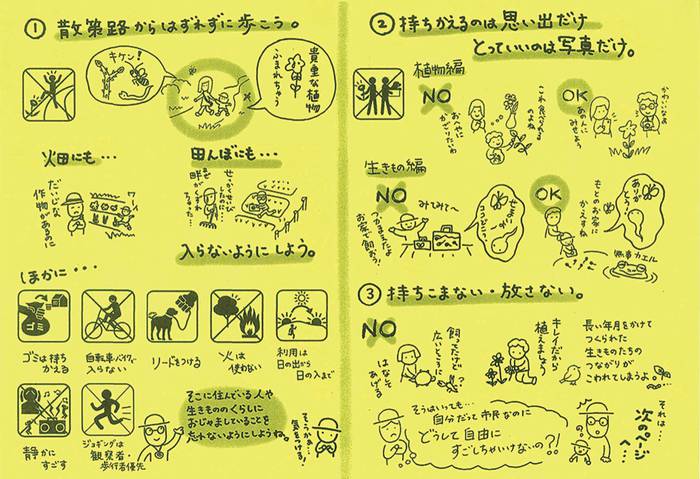 ① 散策路からはずれずに歩こう。
キケン!
貴重な植物
ふまれちゃう
火田にも…
だいじな
作物があるのに
ワーイ
田んぼにも…
せっかくせいび
したのに
畔が
くずれ
ちゃった…
入らないようにしよう。
ほかに・・・
ゴミは持ち
かえる
自転車・バイクで
入らない
リードをつける
火は
使わない
利用は
日の出から
日の入まで
静かに
すごす
ジョギングは
観察者・
歩行者優先
そこに住んでいる人や
生きもののくらしに
おじゃましていることを
忘れないようにしようね。
そっかぁ
気をつける!
② 持ちかえるのは思い出だけ
とっていいのは写真だけ。
植物編
NO
これ食べられる
のよね
OK
あの人に
みせよう
かわいいなぁ
生きもの編
NO
つかまえたよ
お家で飼おう!
みてみて〜
せまいよ
OK
もとのお家に
かえすね
ありが
とう!
無事カエル
③ 持ちこまない・放さない。
NO
飼ってたけど
広いところに
はなして
あげる
キレイだから
植えましょう
長い年月をかけて
つくられた
生きものたちの
つながりが
こわれてしまうよ。
そうはいっても…
自分だって市民なのに
どうして自由に
すごしちゃいけないの?!
それは…
次のページ
へ…